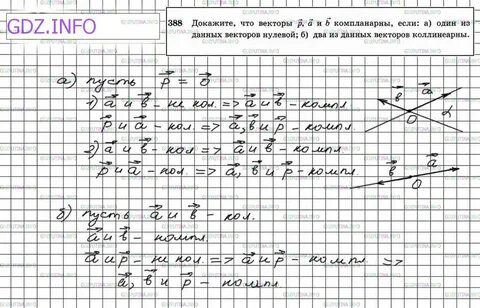 GDZ.INFO
388 Докажите, что векторы p⃗, a⃗ и b⃗ компланарны, если: а) один из
данных векторов нулевой; б) два из данных векторов коллинеарны.
а) пусть p⃗ = 0⃗
1) a⃗ и b⃗ - не кол. => a⃗ и b⃗ - компл.
p⃗ и a⃗ - кол. => a⃗, b⃗ и p⃗ - компл.
b⃗ a⃗
O α
2) a⃗ и b⃗ - кол. => a⃗ и b⃗ - компл.
p⃗ и a⃗ - кол => a⃗, b⃗ и p⃗ - компл
b⃗ a⃗
O
б) пусть a⃗ и b⃗ - кол.
a⃗ и b⃗ - компл.
a⃗ и p⃗ - не кол. => a⃗ и p⃗ - компл =>
a⃗, b⃗ и p⃗ - компл